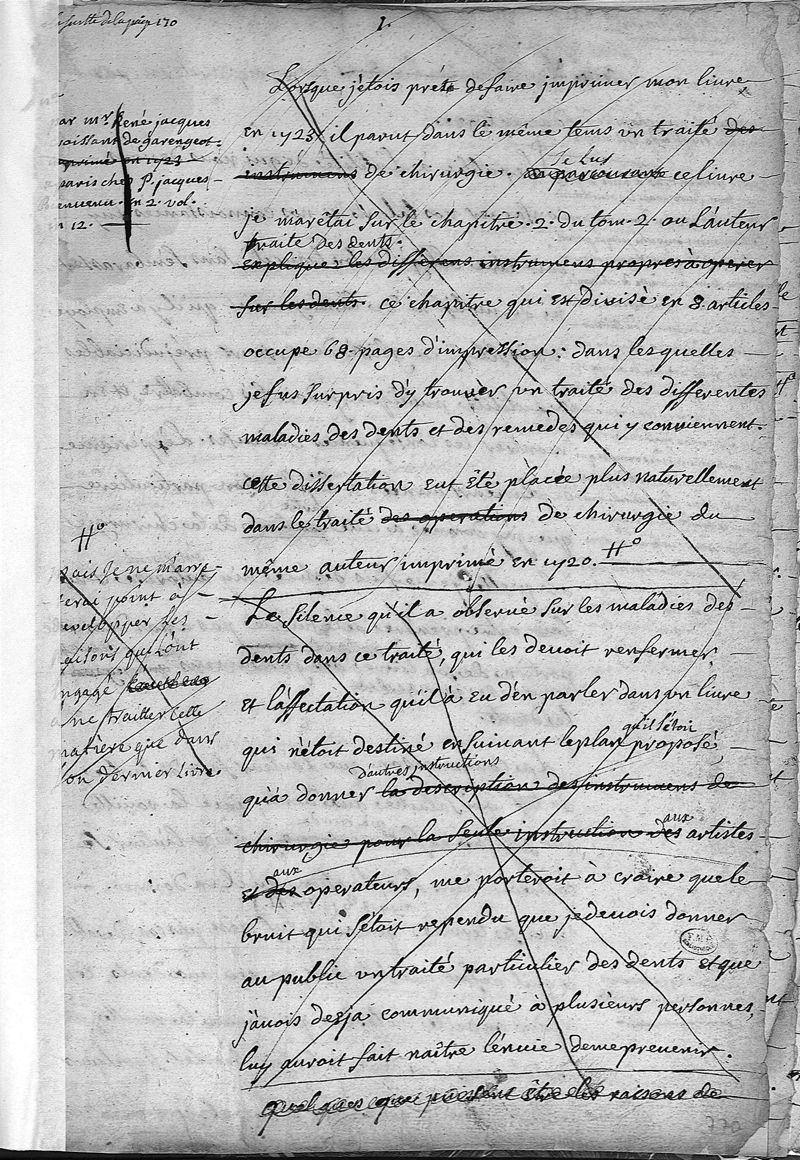 suitte de la page 170
1.
Lorsque j'étois prét defaire jmprimer mon livre
en 1723, il parut dans le même tems un traité des
instrumens de chirurgie. en parcourant ce livre
Je Lus
Je m'arétai sur le chapitre 2. du tom. 2. ou L'auteur
traite Des dents.
explique les differens instrumens propres à operer
sur les dents. ce chapitre qui est divisé en 8. articles
occupe 68. pages d'impression: dans lesquelles
je fus surpris d'y trouver un traité des differentes
maladies des dents et des remedes qui y conviennent.
cette dissertation eut été placée plus naturellement
dans le traité des operations de chirurgie du
même auteur imprimé en 1720. H°
Le silence qu'il a observé sur les maladies des
dents dans ce traité, qui les devoit renfermer,
et l'affectation qu'il a eu d'en parler dans un livre
qui n'étoit destiné en suivant le plan proposé,
qu'il s'étoit
qu'a donner la description des instrumens de
d'autres instructions
chirurgie pour la seule instruction des artistes
aux
et des operateurs, me porteroit à craire que le
aux
bruit qui s'étoit rependu que je devois donner
au public un traité particulier des dents et que
j'avois deja communiqué à plusieurs personnes,
luy auroit fait naître l'énvie de me prevenir.
quelques que puissent être les raisons de
par mr. René jacques
Croissant de garengeot
imprimé en 1723
a paris chez P. jacques
Bienvenu. en 2. vol.
in 12.
H°
mais Je ne m'arre-
terai point à
developper les
raisons qui L'ont
engagé
a ne traitter cette
matière que dans
son dernier Livre.
770